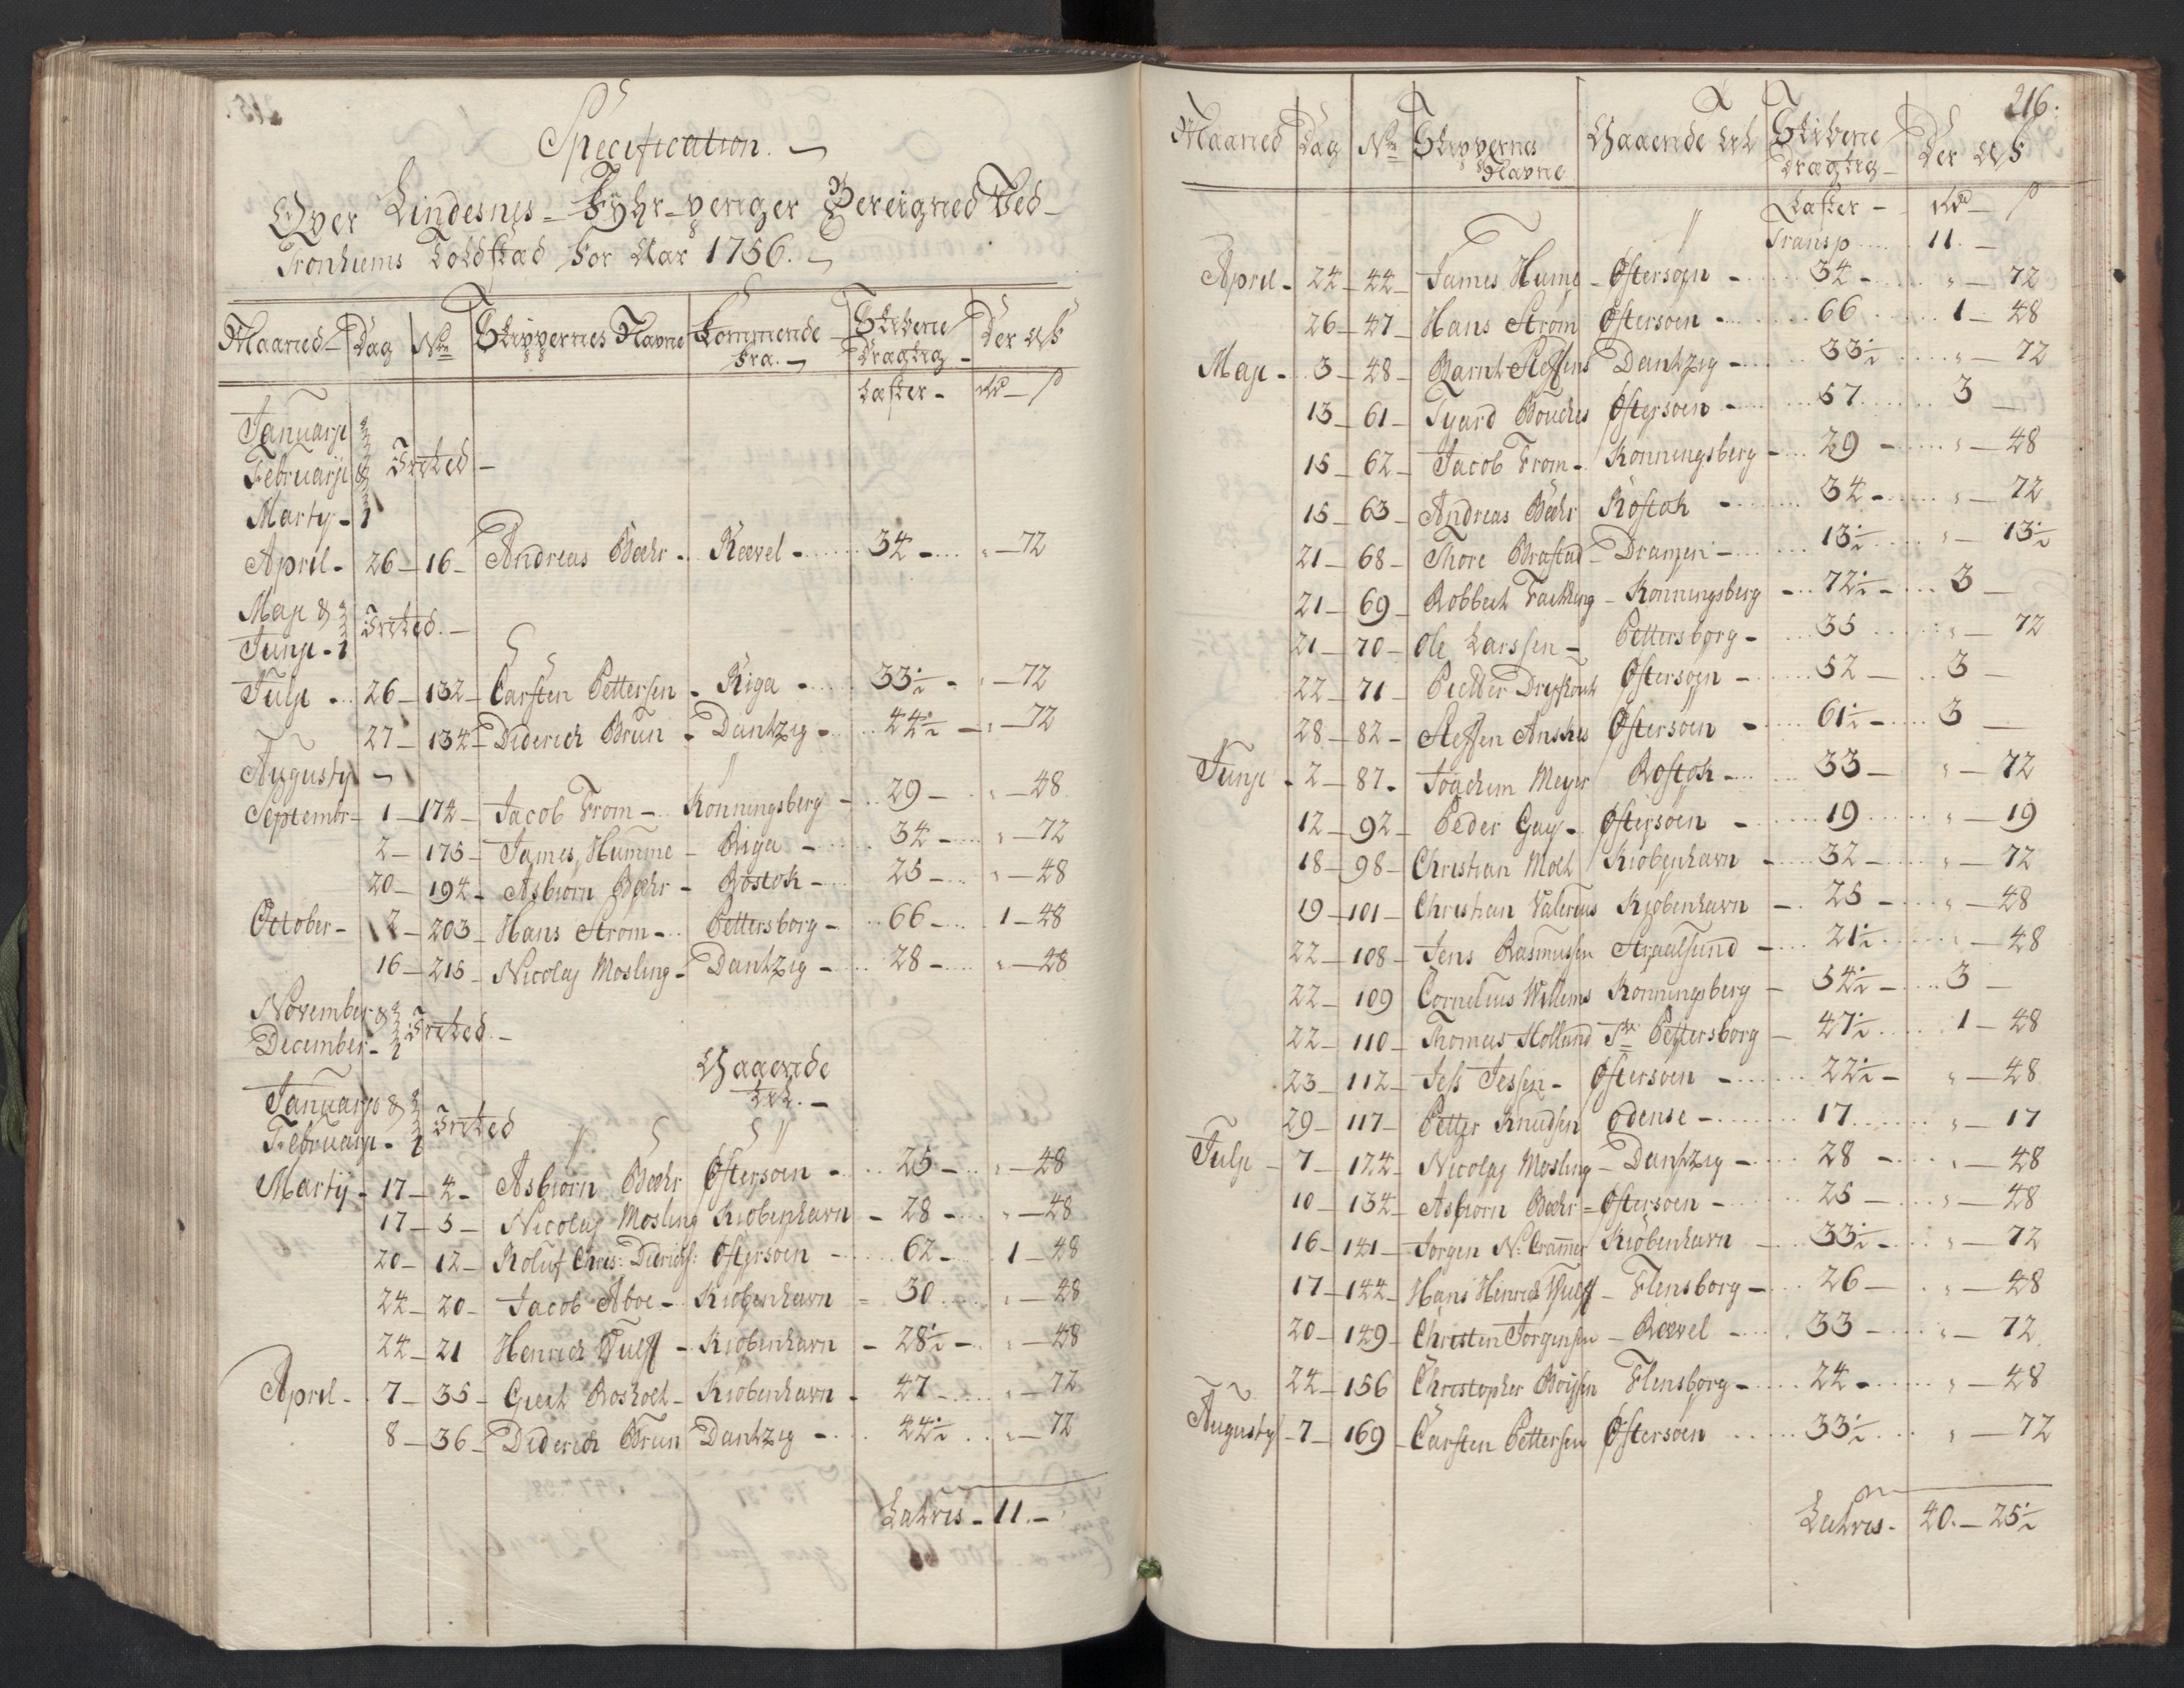 Specification.
Over Lindesnes Fyhr-penger Bereigned Ved
Tronhiems Toldsted for Aar 1756.
Maaned Dag No Skippernes Navne Kommende fra. Skibene Dragtig Der Af
Læster - Rd - ß
January
February & Intet
Marty
April - 26 - 16 - Andreas Bæhr - Rævel - 34 - " - 72
May &
Juny Intet.
July - 26 - 132 - Carsten Pettersen - Riga - 33½ - " - 72
27 - 134 - Diderich Brun - Dantzig - 44½ - " - 72
Augusty - "
Septembr - 1 - 174 - Jacob From - Konningsberg - 29 - " - 48
2 - 175 - James Humme - Riga - 34 - " - 72
20 - 194 - Asbiørn Bæhr - Rostok - 25 - " - 48
October - 2 - 203 - Hans Strøm - Pettersborg - 66 - 1 - 48
16 - 215 - Nicolay Mosling - Dantzig - 28 - " - 48
November &
December - Intet. -
Udgaaende
til. -
January &
February - Intet
Marty - 17 - 4 - Asbiørn Bæhr Østersøen - 25 - " - 48
17 - 5 - Nicolay Mosling Kiøbenhavn - 28 - " - 48
20 - 12 - Roluf Chris: Diderichs: Østersøen - 62 - 1 - 48
24 - 20 - Jacob Aboe - Kiøbenhavn - 30 - " - 48
24 - 21 Henrich Wulff - Kiøbenhavn - 28½ - " - 48
April - 7 - 35 - Giert Rosholt - Kiøbenhavn - 47 - " - 72
8 - 36 - Diderich Brun Dantzig - 44½ - " - 72
Lateris - 11. -
216.
Maaned Dag No Skippernes Navne Udgaaende til Skibene Dragtig Der Af
Læster - Rd - ß
Transp 11. -
April - 24 - 44 - James Hume - Østersøen - 34 - " - 72
26 - 47 - Hans Strøm Østersøen - 66 1 - 48
May - 3 - 48 - Barnt Steffens Dantzig - 33½ " - 72
13 - 61 - Tyard Bouches Østersøen - 57 3 -
15 - 62 - Jacob From - Konningsberg - 29 - " - 48
15 - 63 - Andreas Bæhr Rostok - 34 - " - 72
21 - 68 - Thore Brastad - Dramen - 13½ " - 13½
21 - 69 - Robbert Konningsberg - 72½ - 3 -
21 - 70 - Ole Larssen - Pettersborg - 35 " - 72
22 - 71 - Pietter Østersøen - 52 - 3 -
28 - 82 - Steffen Anskes Østersøen - 61½ - 3 -
Juny - 2 - 87 - Jogchim Meyer Rostok - 33 - " - 72
12 - 92 - Peder Gay - Østersøen - 19 " - 19
18 - 98 - Christian Molt Kiøbenhavn - 32 - " - 72
19 - 101 - Christian Valerius Kiøbenhavn - 25 - " - 48
22 - 108 - Jens Rasmussen Straalsund - 21½ " - 48
22 - 109 Cornelius Willems Konningsberg - 54½ - 3 -
22 - 110 - Thomas Holland Ste Pettersborg - 47½ 1 - 48
23 - 112 - Jess Jessen - Østersøen - 22½ - " - 48
29 - 117 - Petter Knudsen Odense - 17 " - 17
July - 7 - 124 - Nicolay Mosling - Dantzig - 28 - " - 48
10 - 134 - Asbiørn Bæhr = Østersøen - 25 - " - 48
16 - 141 - Jorgen N: Cramer Kiøbenhavn - 33½ - " - 72
17 - 144 - Hans Hinrich Wulff - Flensborg - 26 - " - 48
20 - 149 - Christen Jorgensen - Rævel - 33 - " - 72
24 - 156 Christopher Boijsen Flensborg - 24 - " - 48
Augusty - 7 - 169 - Carsten Pettersen Østersøen 33½ " - 72
Lateris - 40. - 25½